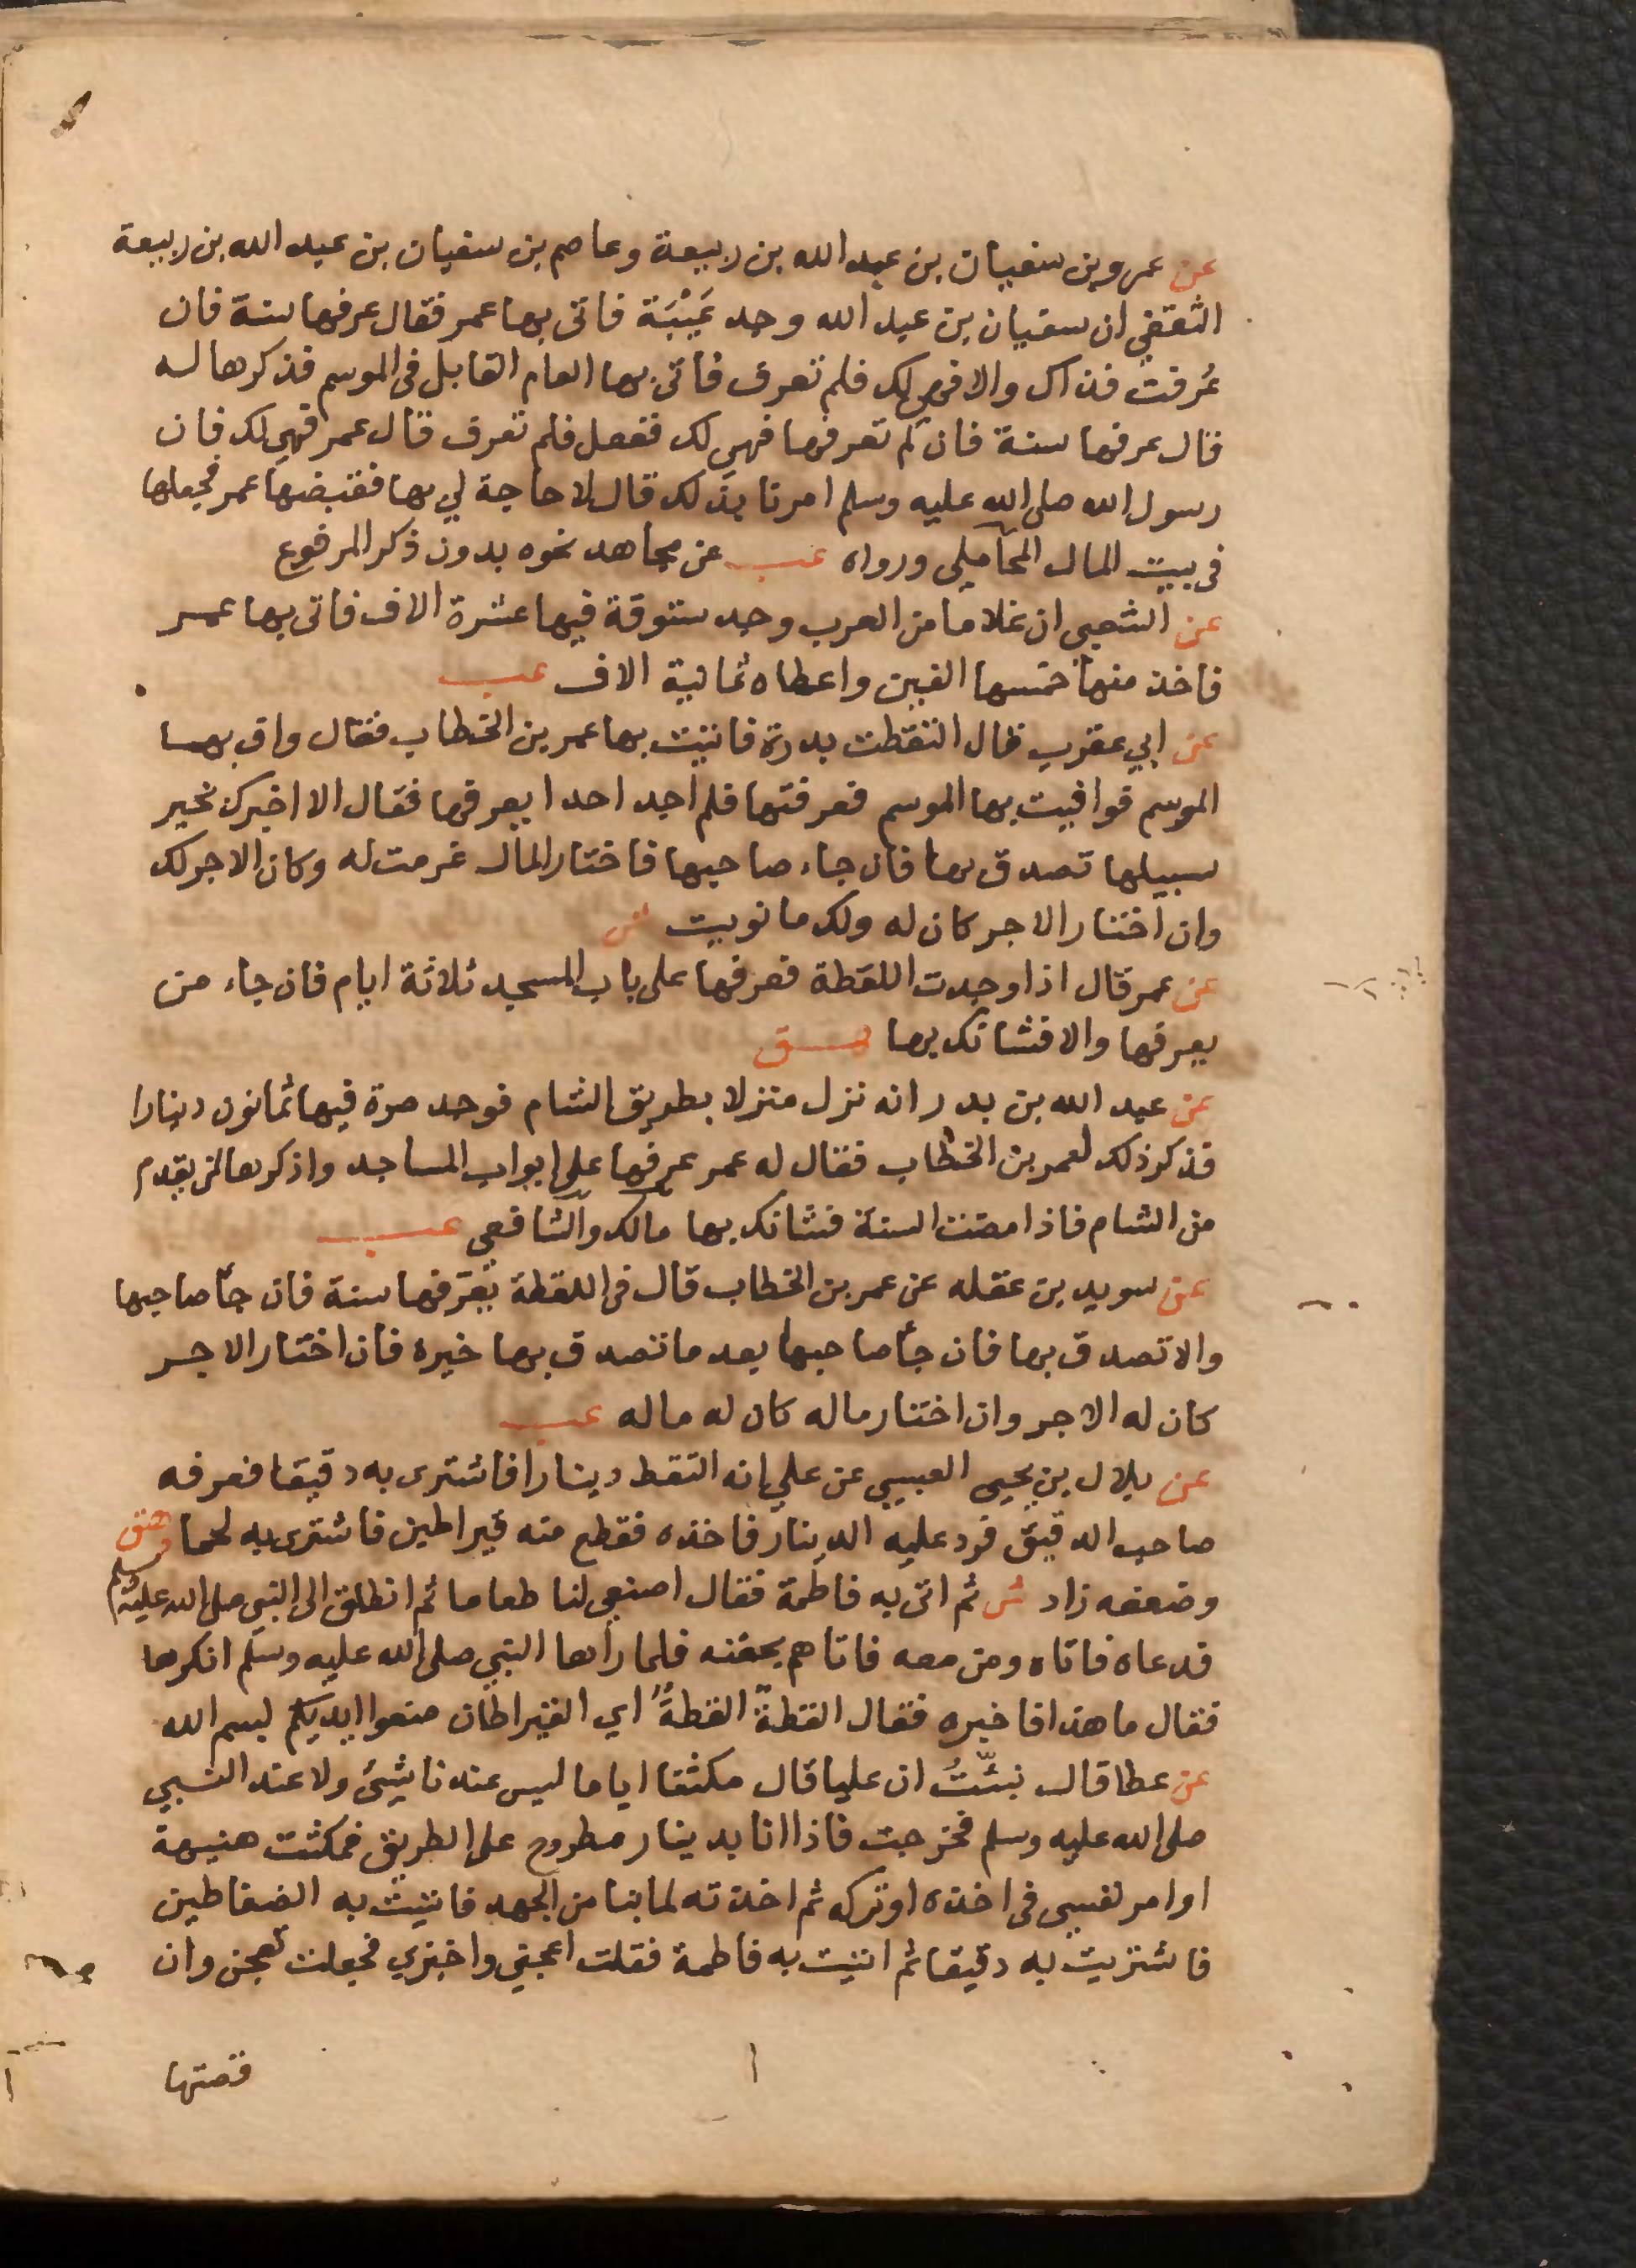 عن عمرو بن سفيان بن عبد الله بن ربيعة وعاصم بن سفيان بن عبد الله بن ربيعة
الثقفي ان سفيان بن عبد الله وجد عَيْبَة فاتى بها عمر فقال عرفها سنة فان
عُرفت فذاك والا فهي لك فلم تعرف فاتى بها العام القابل فى الموسم فذكرها له
فقال عرفها سنة فان لم تعرفها فهي لك ففعل فلم تعرف قال عمر فهي لك فان
رسول الله صلى الله عليه وسلم امرنا بذلك قال لا حاجة لي بها فقبضها عمر فجعلها
فى بيت المال المحاملي ورواه عب عن مجاهد نحوه بدون ذكر المرفوع
عن الشعبي ان غلاما من العرب وجد ستوقة فيها عشرة الاف فاتى بها عمر
فاخذ منها خمسها الفين واعطاه ثمانية الاف عب
عن ابي عقرب قال التقطت بدرة فاتيت بها عمر بن الخطاب فقال واف بها
الموسم فوافيت بها الموسم فعرفتها فلم اجد احدا يعرفها فقال الا اخبرك بخير
سبيلها تصدق بها فان جاء صاحبها فاختار المال غرمت له وكان الاجر لك
وان اختار الاجر كان له ولك ما نويت ش
عن عمر قال اذا وجدت اللقطة فعرفها على باب المسجد ثلاثة ايام فان جاء من
يعرفها والا فشانك بها ق
عن عبد الله بن بدر انه نزل منزلا بطريق الشام فوجد صرة فيها ثمانون دينارا
فذكر ذلك لعمر بن الخطاب فقال له عمر عرفها على ابواب المساجد واذكرها لمن يقدم
من الشام فاذا مضت السنة فشانك بها مالك والشافعي عب
عن سويد بن عقله عن عمر بن الخطاب قال فى اللقطة يُعَرّفها سنة فان جأ صاحبها
والا تصدق بها فان جأ صاحبها بعد ما تصدق بها خيره فان اختار الاجر
كان له الاجر وان اختار ماله كان له ماله عب
عن بلال بن يحيى العبسي عن علي انه التقط دينارا فاشترى به دقيقا فعرفه
صاحب الدقيق فرد عليه الدينار فاخذه فقطع منه قيراطين فاشترى به لحما د هق
وضعفه زاد ش ثم اتى به فاطمة فقال اصنعي لنا طعاما ثم انطلق الى النبي صلى الله عليه وسلم
فدعاه فاتاه ومن معه فاتاهم بجفنه فلما رأها النبي صلى الله عليه وسلم انكرها
فقال ما هذا فاخبره فقال القطةً القطةً اي القيراطان ضعوا ايديكم بسم الله
عن عطا قال نبئتُ ان عليا قال مكثنا اياما ليس عندنا شيئ ولا عند النبي
صلى الله عليه وسلم فخرجت فاذا انا بدينار مطروح على الطريق فمكثت هنيهة
اوامر نفسي فى اخذه او تركه ثم اخذته لما بنا من الجهد فاتيت به الضفاطين
فاشتريت به دقيقا ثم اتيت به فاطمة فقلت اعجني واخبزي فجعلت تعجن وان
قصتها